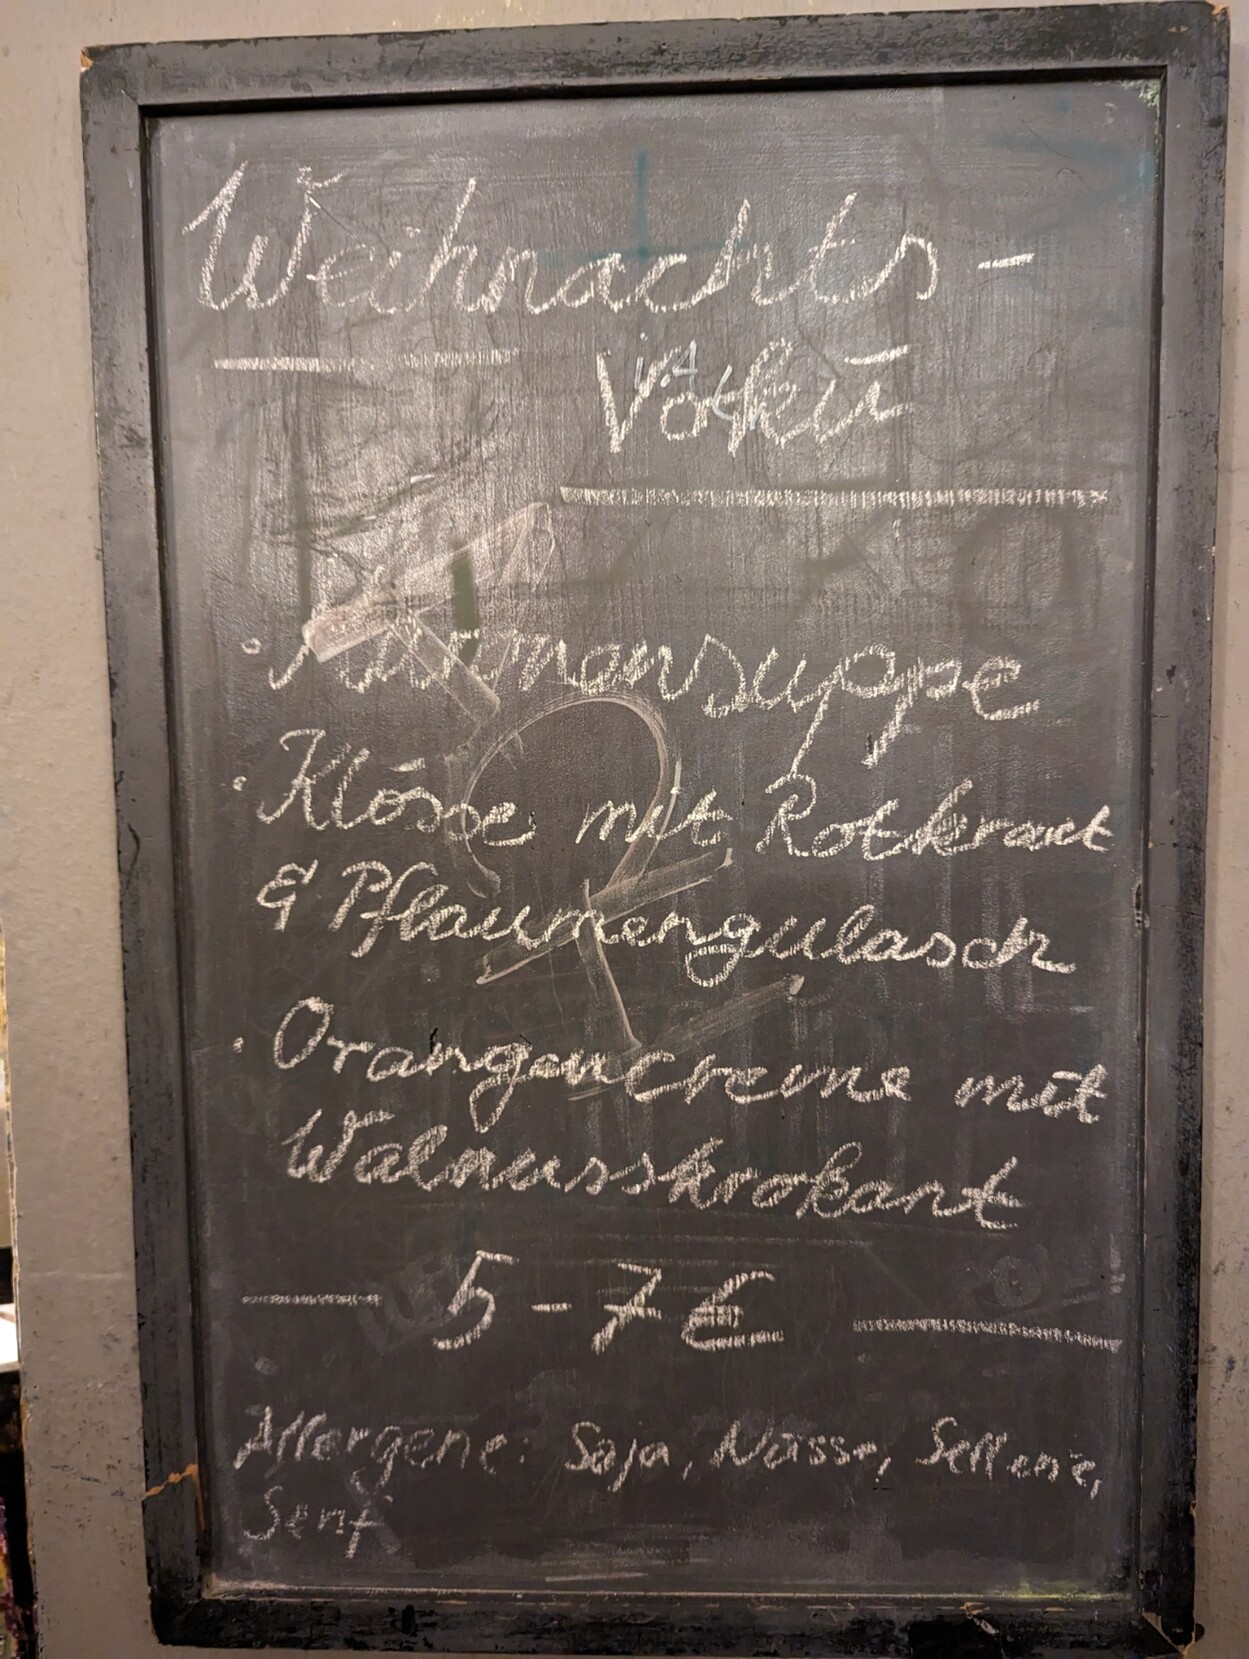 Weihnachts-
Vokü
· Maronensuppe
· Klösse mit Rotkraut
& Pflaumengulasch
· Orangencreme mit
Walnusskrokant
5-7€
Allergene: Soja, Nüsse, Sellerie,
Senf